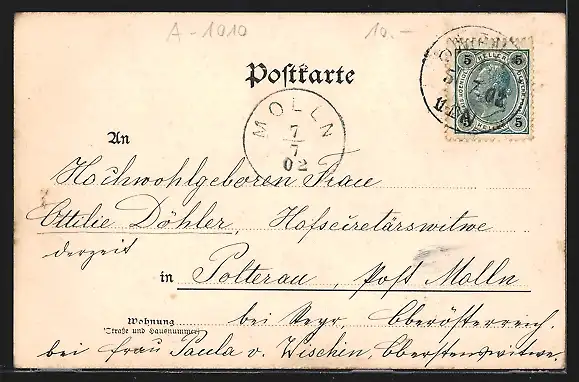 A-1010
10.-
5 HELLER 5
5 5
7.02
Postkarte
MOLLN
7
7
02
An
Hochwohlgeboren Frau
Ottilie Döhler, Hofsecretärswitwe
derzeit
in Polterau, Post Molln
Wohnung
(Straße und Hausnummer)
bei Steyr, Oberösterreich.
bei Frau Paula v. Zischen, Oberstenswitwe.